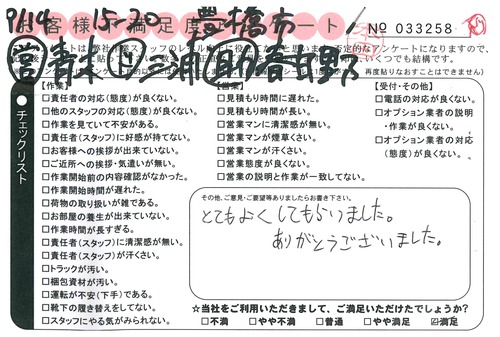 9/14 15-20 豊橋市
お客様不満足度アンケート
No 033258
再度貼りなおすことはできません)
チェックリスト
【作業】
□責任者の対応(態度)が良くない。
□他のスタッフの対応(態度)が良くない。
□作業を見ていて不安がある。
□責任者(スタッフ)に好感が持てない。
□お客様への挨拶が出来ていない。
□ご近所への挨拶・気遣いが無い。
□作業開始前の内容確認がなかった。
□作業開始時間が遅れた。
□荷物の取り扱いが雑である。
□お部屋の養生が出来ていない。
□作業時間が長すぎる。
□責任者(スタッフ)に清潔感が無い。
□責任者(スタッフ)が汗くさい。
□トラックが汚い。
□梱包資材が汚い。
□運転が不安(下手)である。
□靴下の履き替えをしてない。
□スタッフにやる気がみられない。
【営業】
□見積もり時間に遅れた。
□見積もり時間が長い。
□営業マンに清潔感が無い。
□営業マンが煙草くさい。
□営業マンが汗くさい。
□営業態度が良くない。
□営業の説明と作業が一致してない。
【受付・その他】
□電話の対応が良くない。
□オプション業者の説明
・作業が良くない。
□オプション業者の対応
(態度)が良くない。
その他、ご意見・ご要望等ありましたらお書き下さい。
とてもよくしてもらいました。
ありがとうございました。
☆当社をご利用いただきまして、ご満足いただけたでしょうか?
□不満 □やや不満 □普通 □やや満足 ☑満足